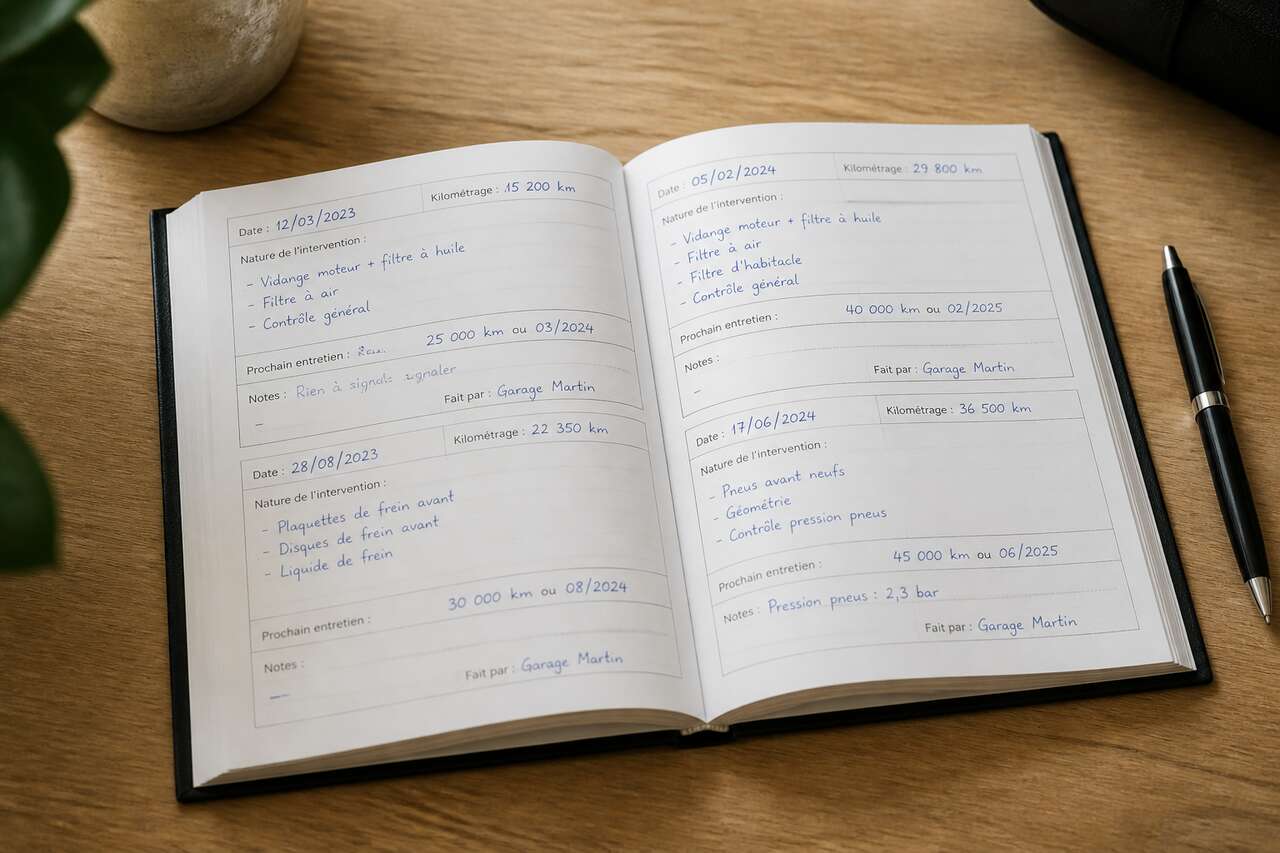 Date : 12/03/2023 Kilométrage : 15 200 km
Nature de l'intervention :
- Vidange moteur + filtre à huile
- Filtre à air
- Contrôle général
Prochain entretien : 25 000 km ou 03/2024
Notes : Rien à signaler
Fait par : Garage Martin
–
Date : 28/08/2023 Kilométrage : 22 350 km
Nature de l'intervention :
- Plaquettes de frein avant
- Disques de frein avant
- Liquide de frein
Prochain entretien : 30 000 km ou 08/2024
Notes :
Fait par : Garage Martin
—
Date : 05/02/2024 Kilométrage : 29 800 km
Nature de l'intervention :
- Vidange moteur + filtre à huile
- Filtre à air
- Filtre d'habitacle
- Contrôle général
Prochain entretien : 40 000 km ou 02/2025
Notes :
–
Fait par : Garage Martin
Date : 17/06/2024 Kilométrage : 36 500 km
Nature de l'intervention :
- Pneus avant neufs
- Géométrie
- Contrôle pression pneus
Prochain entretien : 45 000 km ou 06/2025
Notes : Pression pneus : 2,3 bar
Fait par : Garage Martin